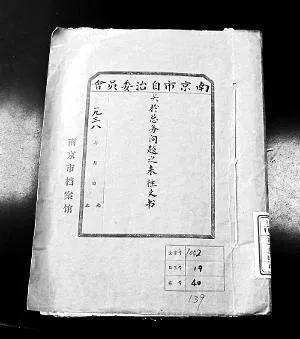 南京市自治委員會
关於总务问题之来往文书
一九三八年 月 日
南京市档案馆
全宗号 1002
目录号 19
卷号 40
139